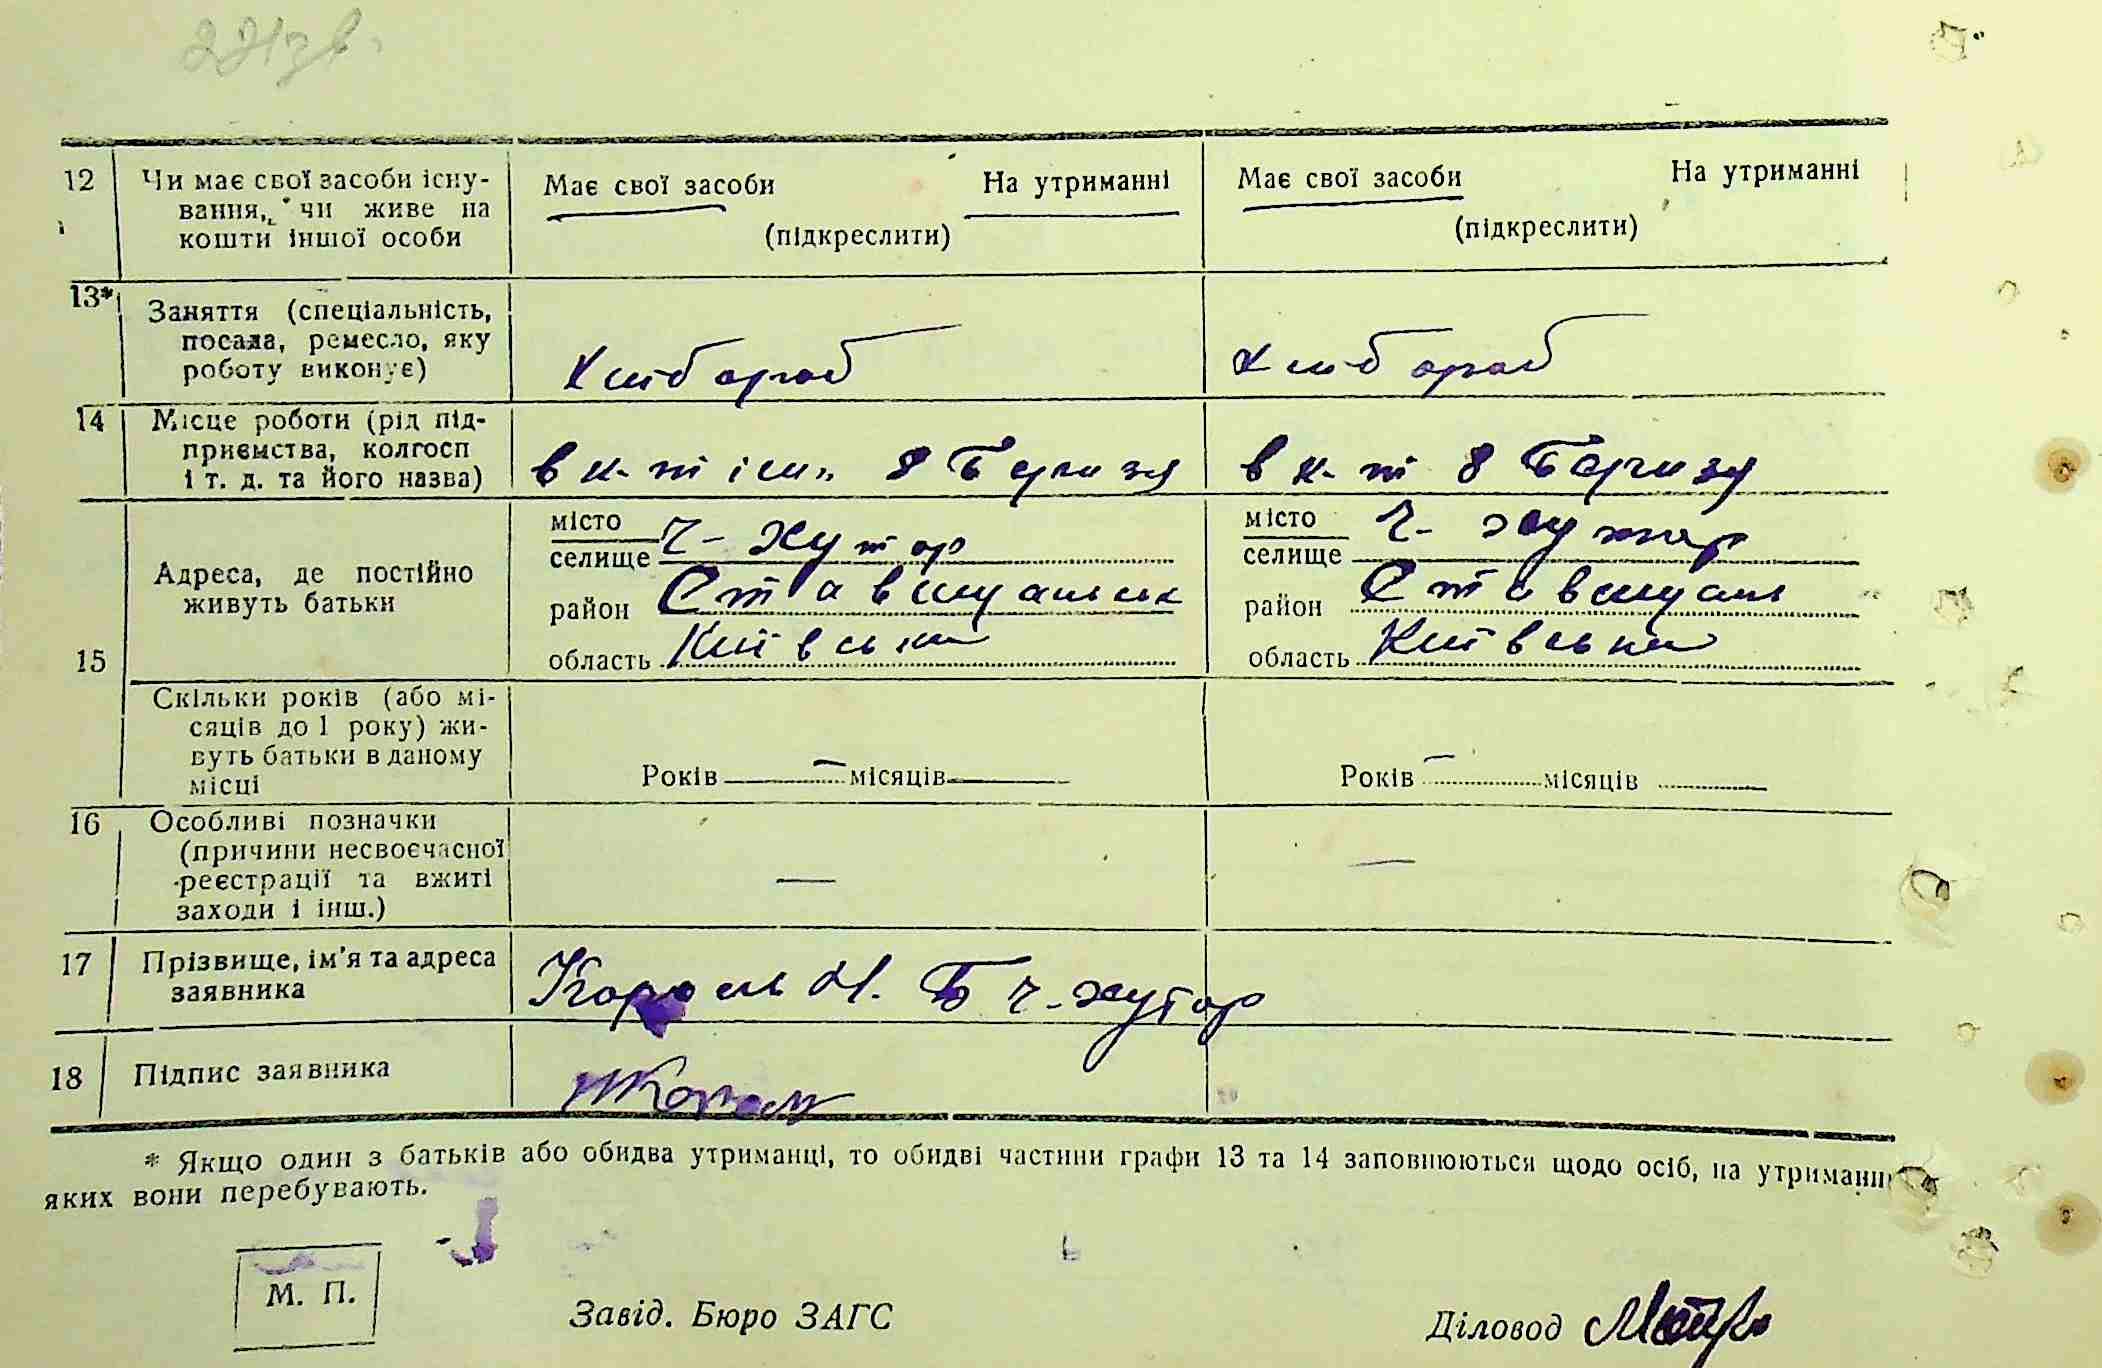 221зв.
12 Чи має свої засоби існу- Має свої засоби На утриманні Має свої засоби На утриманні
вання, чи живе на (підкреслити) (підкреслити)
кошти іншої особи
13* Заняття (спеціальність,
посада, ремесло, яку
роботу виконує) Хлібороб Хлібороб
14 Місце роботи (рід під-
приємства, колгосп
і т. д. та його назва) в к-ті ім. 8 Березня в к-ті 8 Березня
місто Ч-Хутор місто Ч-Хутор
селище селище
Адреса, де постійно
живуть батьки район Ставищанськ район Ставищан
15 область Київська область Київська
Скільки років (або мі-
сяців до 1 року) жи-
вуть батьки в даному Років — місяців Років — місяців
місці
16 Особливі позначки
(причини несвоєчасної
реєстрації та вжиті — —
заходи і інш.)
17 Прізвище, ім'я та адреса Король Н. Б Ч-Хутор
заявника
18 Підпис заявника НКороль
* Якщо один з батьків або обидва утриманці, то обидві частини графи 13 та 14 заповнюються щодо осіб, на утриманні
яких вони перебувають.
М. П.
Завід. Бюро ЗАГС Діловод